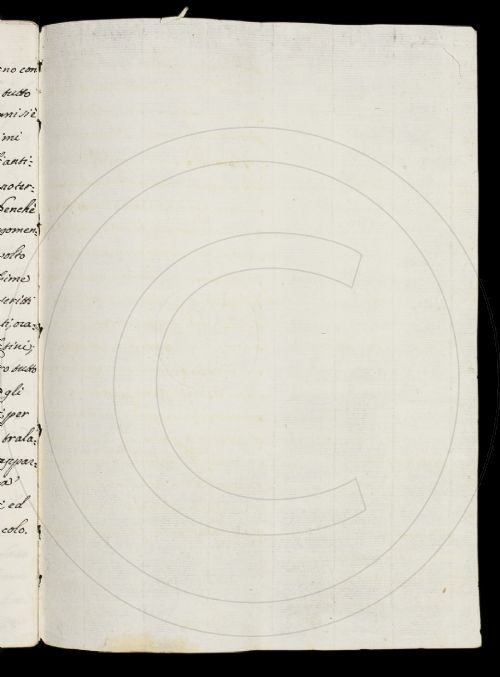 no con
tutto
ni si è
imi
anti=
noter=
benchè
gomen=
volto
time
scritti
ti, ora=
tini;
ro tutto
gli
per
trala=
appar=
a'
ed
colo.